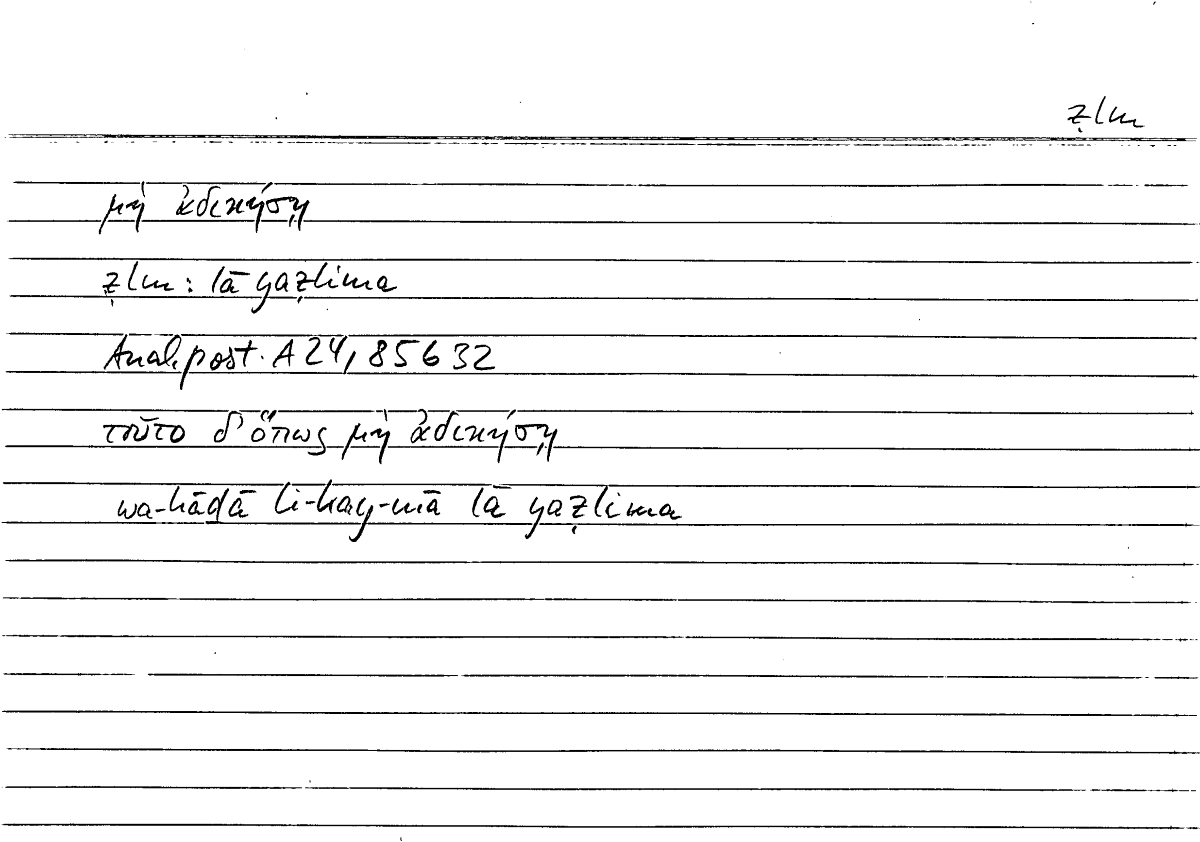 ẓlm
μὴ ἀδικήσῃ
ẓlm: lā yaẓlima
Anal. post. A 24, 85 b 32
τοῦτο δ' ὅπως μὴ ἀδικήσῃ
wa-hāḏā li-kay-mā lā yaẓlima